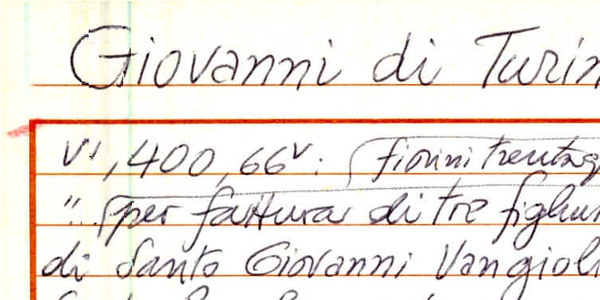 Giovanni di Turin
VI, 400, 66v. fiorini trentas
" per fattura di tre fighur
di Santo Giovanni Vangiol